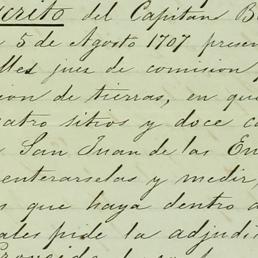 scrito del Capitan B
5 de Agosto 1707 presen
lles juez de comision y
ion de tierras, en qu
atro sitios y doce ca
San Juan de las En
enterarselas y medir,
s que haya dentro d
ales pide la adjudi